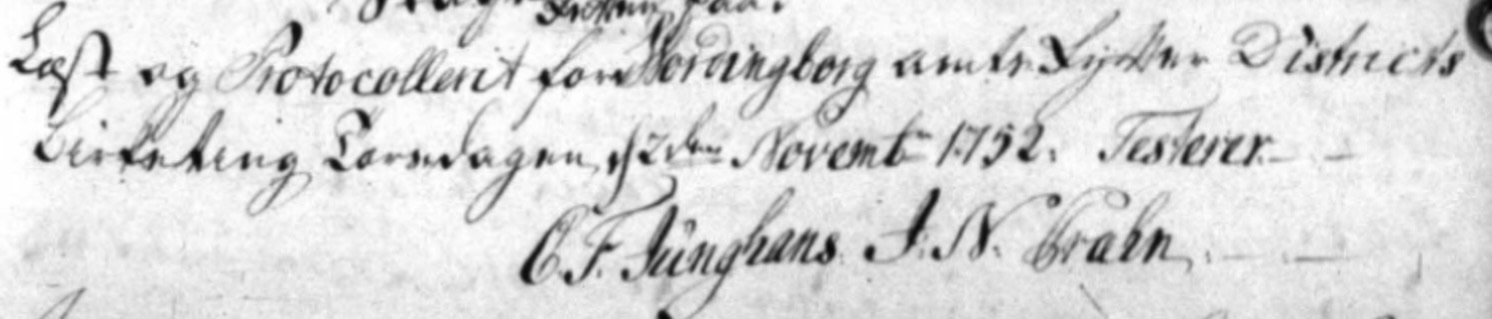 Læst og Protocollerit for Wordingborg amts Rytter Districts
Birketing Torsdagen d 2den Novembr 1752. Testerer
C. F. Junghans. J. N. Crahn